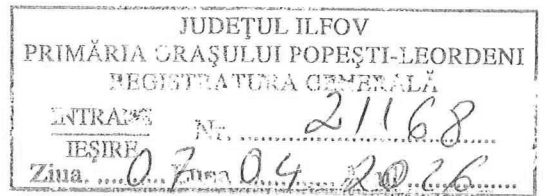 JUDEŢUL ILFOV
PRIMĂRIA ORAŞULUI POPEŞTI-LEORDENI
REGISTRATURA GENERALĂ
INTRARE Nr. 21168
IEŞIRE
Ziua 07 Luna 04 2026